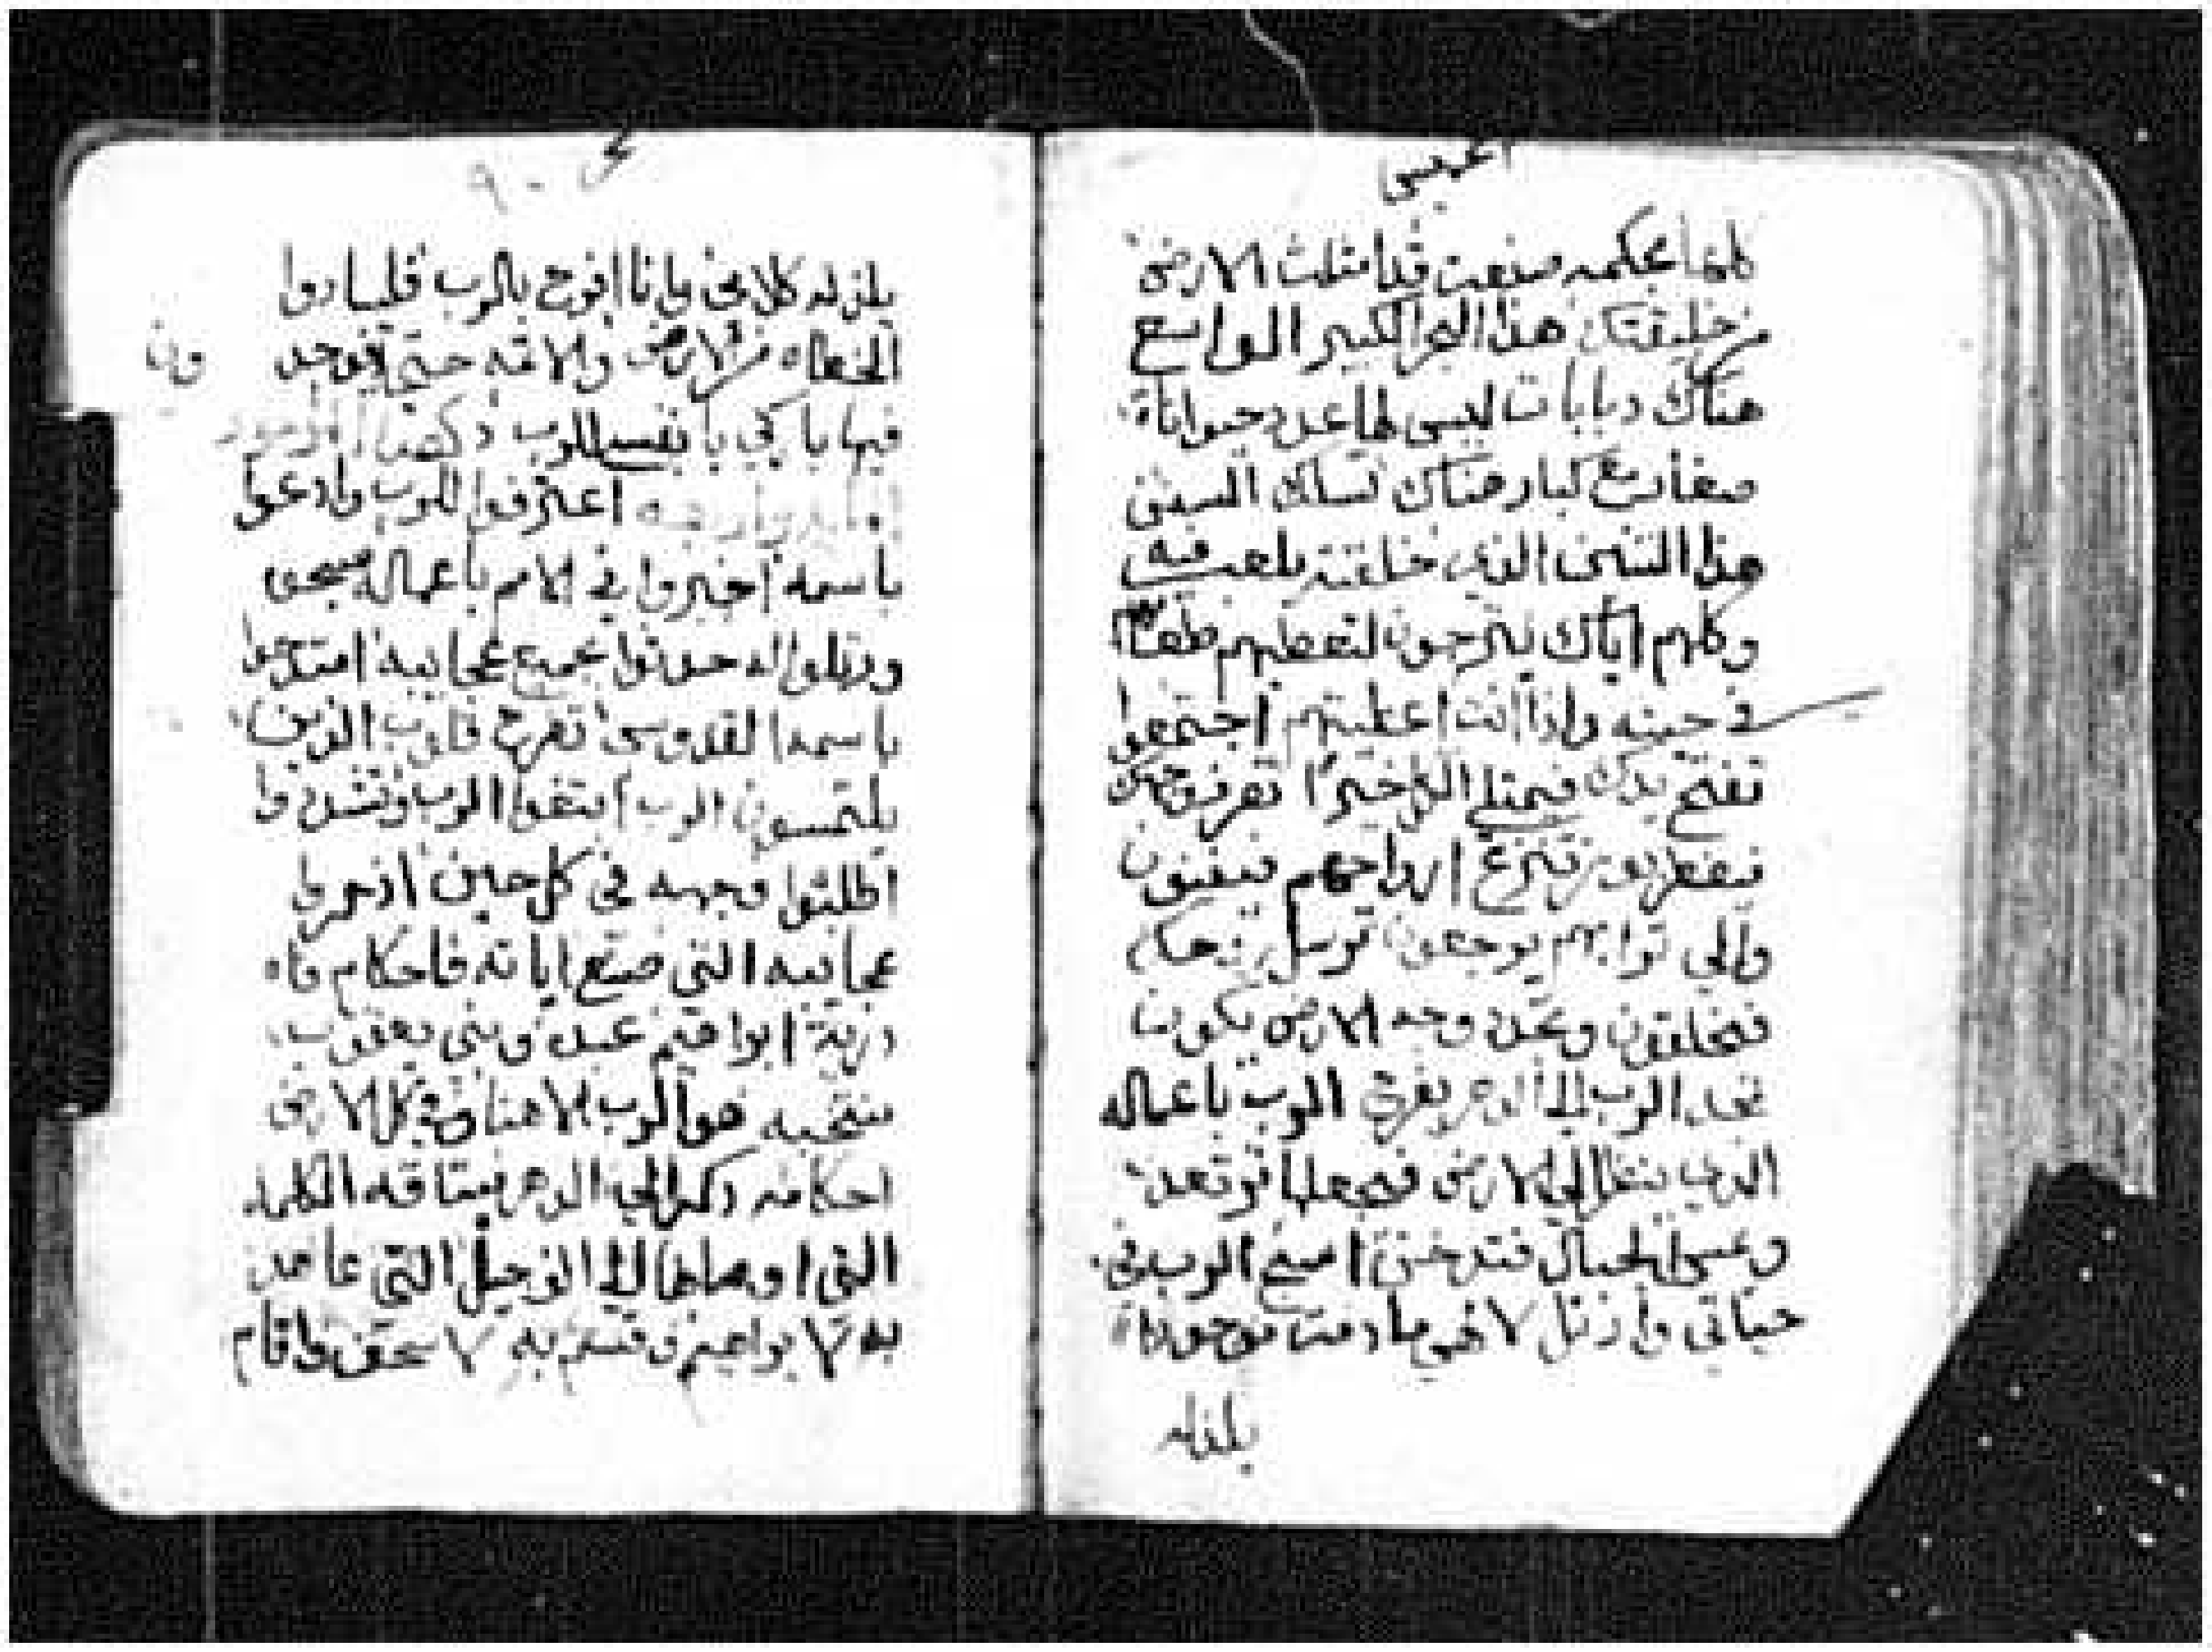 كلها بحكمه صنعت قد امتلت الارض
من خليقتك هذا البحر الكبير الواسع
هناك دبابات ليس لها عدد حيوانات
صغار مع كبار هناك تسلك السفن
هذا التنين الذي خلقته يلعب فيه
وكلهم اياك يترجون لتعطيهم طعامًا
في حينه واذا انت اعطيتهم اجتمعوا
تفتح يدك فيمتلي الكل خيرًا تصرف وجهك
فيضطربون تنزع ارواحهم فيفنون
والي ترابهم يرجعون ترسل روحك
فيخلقون وتجدد وجه الارض يكون
مجد الرب الي الدهر يفرح الرب باعماله
الذي ينظر الي الارض فيجعلها ترتعد
ويمس الجبال فتدخن اسبح الرب في
حياتي وارتل لالهي ما دمت موجودا
يلذ له
يلذ له كلامي وانا افرح بالرب فليبادوا
الخطاه من الارض والاتمه حتي لا يوجدون
فيها باركي يا نفسي للرب
اعترفوا للرب وادعوا
باسمه اخبروا في الامم باعماله سبحوا
ورتلوا له حدثوا بجميع عجايبه امتدحوا
باسمه القدوس تفرح قلوب الذين
يلتمسون الرب ابتغوا الرب وتشددوا
اطلبوا وجهه في كل حين اذكروا
عجايبه التي صنع اياته واحكام فاه
ذرية ابراهيم عبده وبني يعقوب
منتخبيه هو الرب الاهنا في كل الارض
احكامه ذكر الي الدهر ميتاقه الكلمه
التي اوصاها الي الف جيل التي عاهد
به لابراهيم وقسمه لاسحق واقام